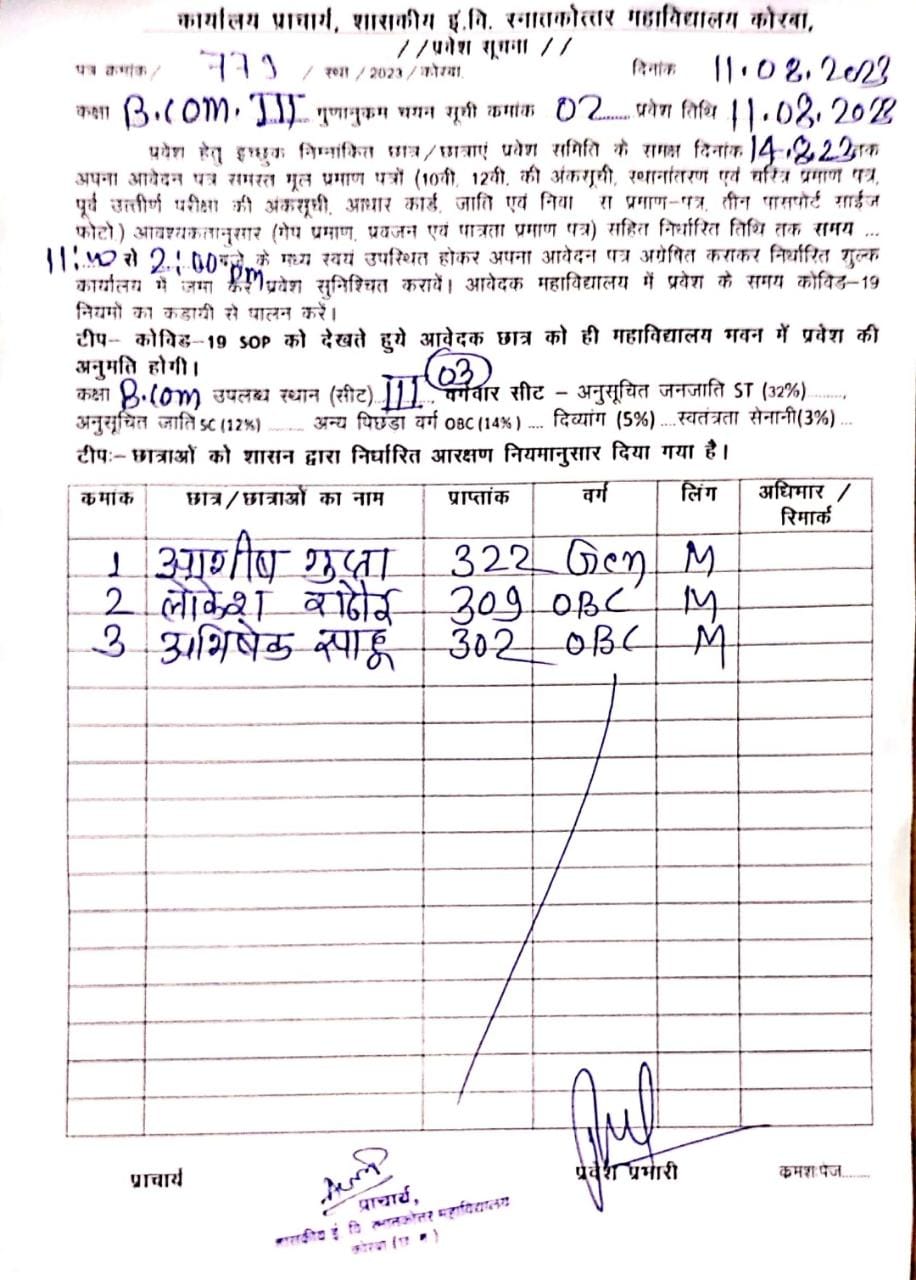 कार्यालय प्राचार्य, शासकीय इं.वि. स्नातकोत्तर महाविद्यालय कोरबा,
//प्रवेश सूचना //
पत्र कमांक/ 779 / स्था / 2023 / कोरबा. दिनांक 11.08.2023
कक्षा B.COM. III गुणानुकम चयन सूची कमांक 02 प्रवेश तिथि 11.08.2023
प्रवेश हेतु इच्छुक निम्नांकित छात्र/छात्राएं प्रवेश समिति के समक्ष दिनांक 14.8.23 तक
अपना आवेदन पत्र समस्त मूल प्रमाण पत्रों (10वी, 12वी, की अंकसूची, स्थानांतरण एवं चरित्र प्रमाण पत्र,
पूर्व उत्तीर्ण परीक्षा की अंकसूची, आधार कार्ड, जाति एवं निवा स प्रमाण-पत्र, तीन पासपोर्ट साईज
फोटो.) आवश्यकतानुसार (गेप प्रमाण, प्रवजन एवं पात्रता प्रमाण पत्र) सहित निर्धारित तिथि तक समय ...
11:00 से 2:00 pm बजे के मध्य स्वयं उपस्थित होकर अपना आवेदन पत्र अग्रेषित कराकर निर्धारित शुल्क
कार्यालय में जमा कर प्रवेश सुनिश्चित करावें। आवेदक महाविद्यालय में प्रवेश के समय कोविड-19
नियमों का कडायी से पालन करें।
टीप- कोविड-19 SOP को देखते हुये आवेदक छात्र को ही महाविद्यालय भवन में प्रवेश की
अनुमति होगी।
कक्षा B.COM उपलब्ध स्थान (सीट) III 03 वर्गवार सीट - अनुसूचित जनजाति ST (32%)..........,
अनुसूचित जाति SC (12%) ......... अन्य पिछडा वर्ग OBC (14%) .... दिव्यांग (5%) ....स्वतंत्रता सेनानी(3%) ...
टीपः- छात्राओं को शासन द्वारा निर्धारित आरक्षण नियमानुसार दिया गया है।
कमांक छात्र/छात्राओं का नाम प्राप्तांक वर्ग लिंग अधिभार / रिमार्क
1 आशीष गुप्ता 322 Gen M
2 लोकेश राठौर 309 OBC M
3 अभिषेक साहू 302 OBC M
प्राचार्य प्रवेश प्रभारी कमशःपेज.......
प्राचार्य,
शासकीय इं वि स्नातकोत्तर महाविद्यालय
कोरबा (छ ग)